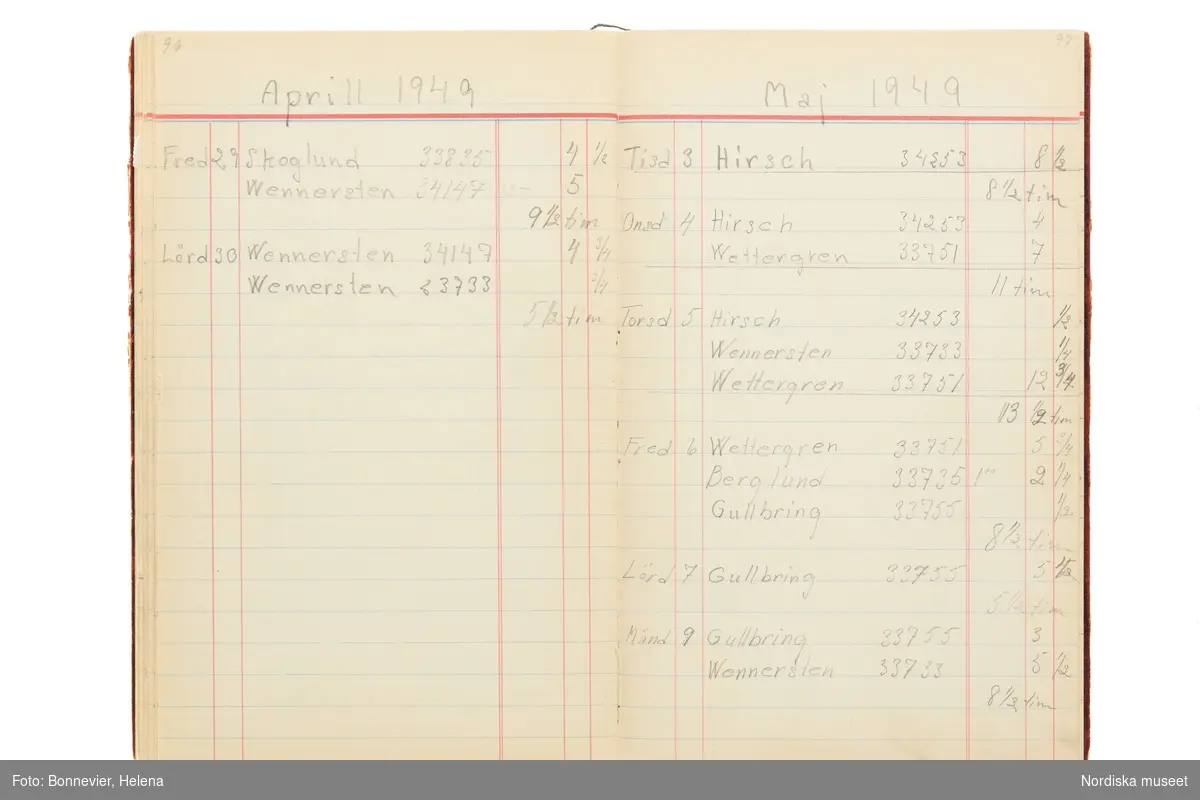 96
Aprill 1949
Fred 29 Skoglund 33835 4 1/2
Wennersten 34147 5
9 1/2 tim
Lörd 30 Wennersten 34147 4 3/4
Wennersten 33733 3/4
5 1/2 tim
97
Maj 1949
Tisd 3 Hirsch 34253 8 1/2
8 1/2 tim
Onsd 4 Hirsch 34253 4
Wettergren 33751 7
11 tim
Torsd 5 Hirsch 34253 1/2
Wennersten 33733 1/4
Wettergren 33751 12 3/4
13 1/2 tim
Fred 6 Wettergren 33751 5 3/4
Berglund 33735 2 1/4
Gullbring 33755 1/2
8 1/2 tim
Lörd 7 Gullbring 33755 5 1/2
5 1/2 tim
Månd 9 Gullbring 33755 3
Wennersten 33733 5 1/2
8 1/2 tim
Foto: Bonnevier, Helena
Nordiska museet